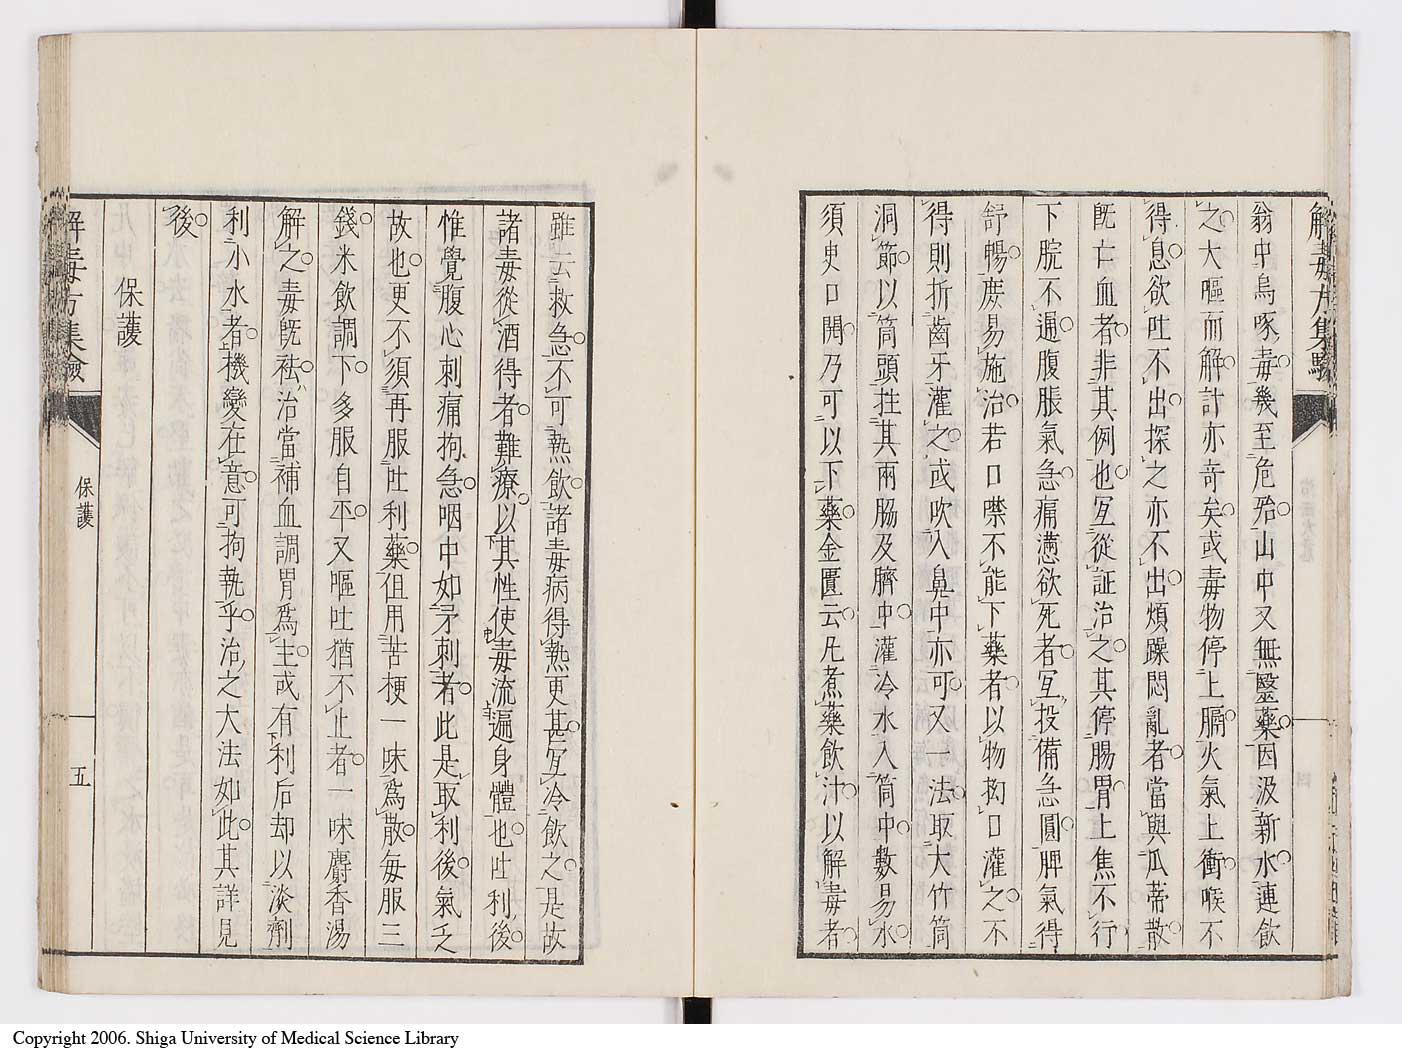 解毒方集驗
翁中烏啄毒幾至危殆山中又無毉藥因汲新水連飲
之大嘔而解計亦奇矣或毒物停上膈火氣上衝喉不
得息欲吐不出探之亦不出煩躁悶亂者當與瓜蒂散
既亡血者非其例也宜從証治之其停腸胃上焦不行
下脘不通腹脹氣急痛懣欲死者宜投備急圓脾氣得
舒暢庻易施治若口噤不能下藥者以物拘口灌之不
得則折齒牙灌之或吹入鼻中亦可又一法取大竹筒
洞節以筒頭拄其兩脇及臍中灌冷水入筒中數易水
須臾口開乃可以下藥金匱云凡煮藥飲汁以解毒者
雖云救急不可熱飲諸毒病得熱更甚宜冷飲之是故
諸毒從酒得者難療以其性使毒流遍身體也吐利後
惟覺腹心刺痛拘急咽中如矛刺者此是取利後氣乏
故也更不須再服吐利藥但用苦梗一味爲散每服三
錢米飲調下多服自平又嘔吐猶不止者一味麝香湯
解之毒既袪治當補血調胃爲主或有利后却以淡劑
利小水者機變在意可拘執乎治之大法如此其詳見
後
保護
解毒方集驗
保護
五